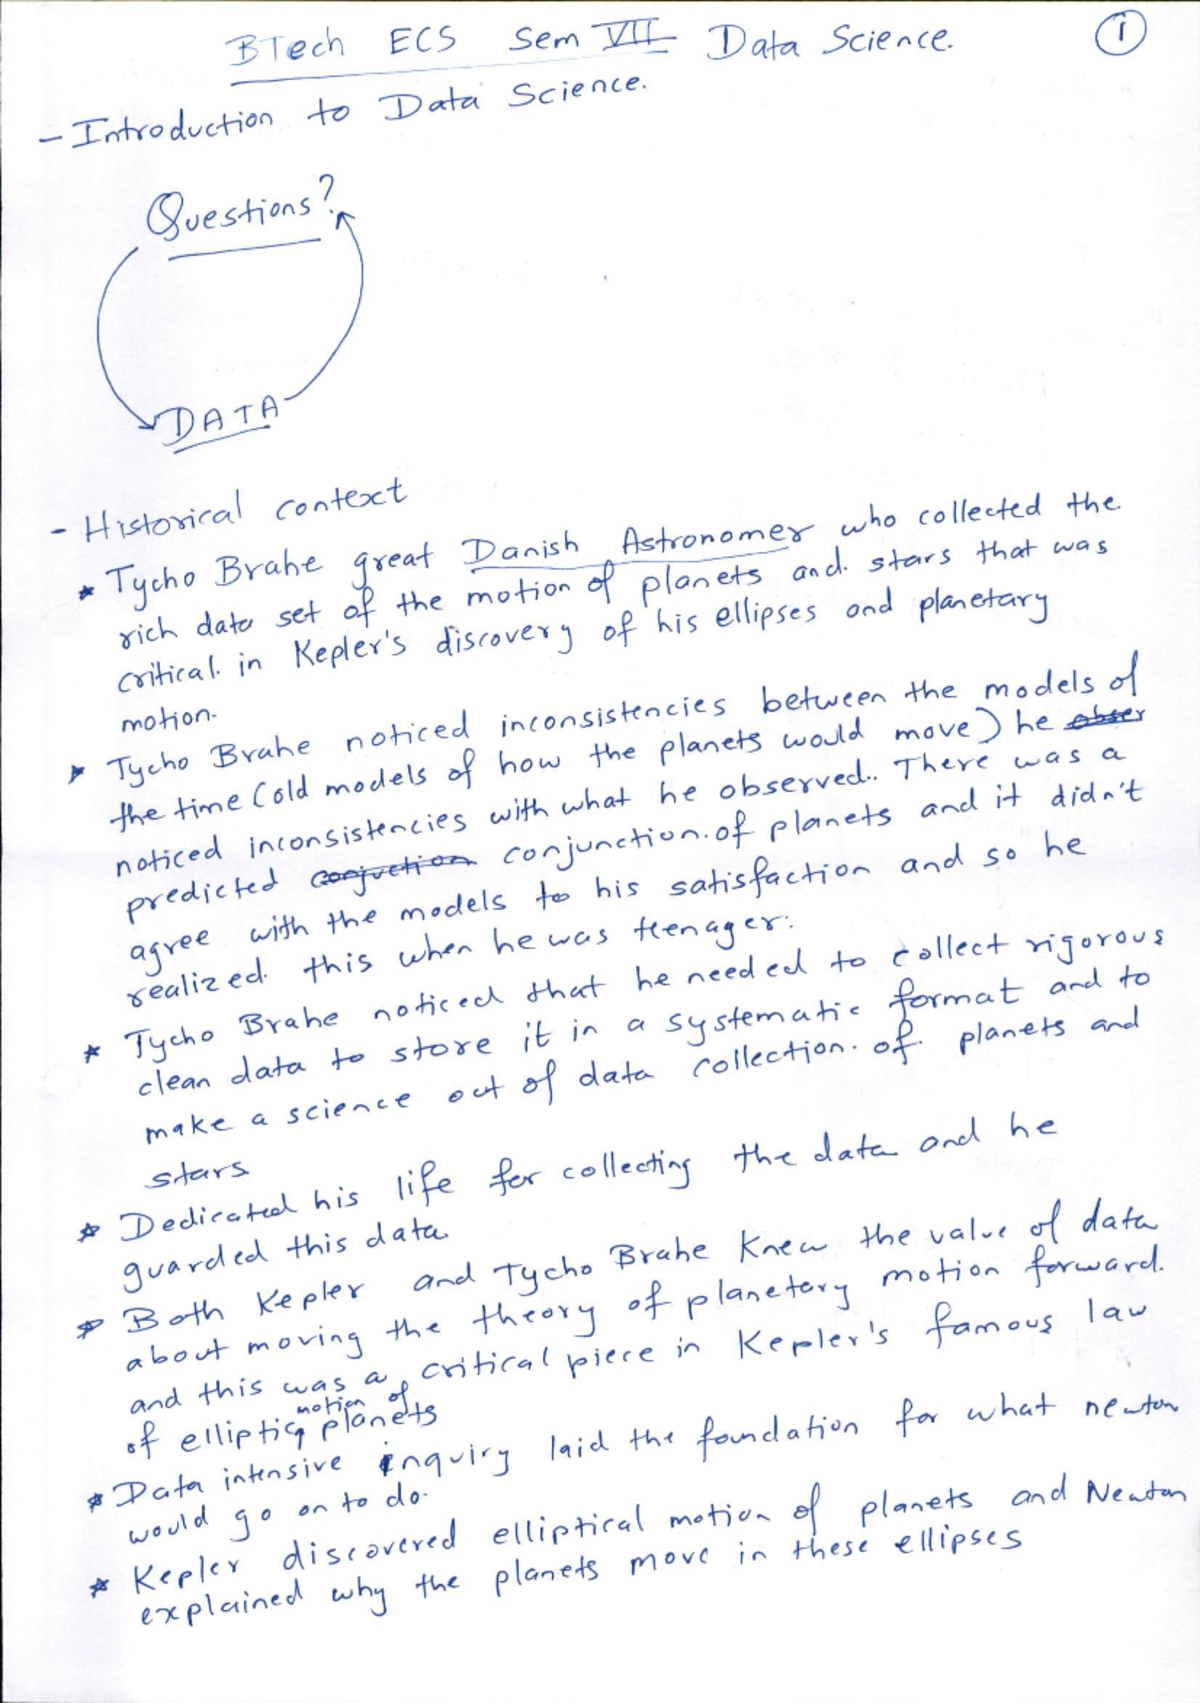 BTech ECS Sem VII Data Science. 1
- Introduction to Data Science.
Questions?
DATA
- Historical context
* Tycho Brahe great Danish Astronomer who collected the
rich data set of the motion of planets and stars that was
critical in Kepler's discovery of his ellipses and planetary
motion.
* Tycho Brahe noticed inconsistencies between the models of
the time (old models of how the planets would move) he obser
noticed inconsistencies with what he observed.. There was a
predicted conjuction conjunction of planets and it didn't
agree with the models to his satisfaction and so he
realized this when he was teenager.
* Tycho Brahe noticed that he needed to collect rigorous
clean data to store it in a systematic format and to
make a science out of data collection of planets and
stars
* Dedicated his life for collecting the data and he
guarded this data.
* Both Kepler and Tycho Brahe Knew the value of data
about moving the theory of planetery motion forward.
and this was a critical piece in Kepler's famous law
of elliptic motion of planets
* Data intensive inquiry laid the foundation for what newton
would go on to do.
* Kepler discovered elliptical motion of planets and Newton
explained why the planets move in these ellipses